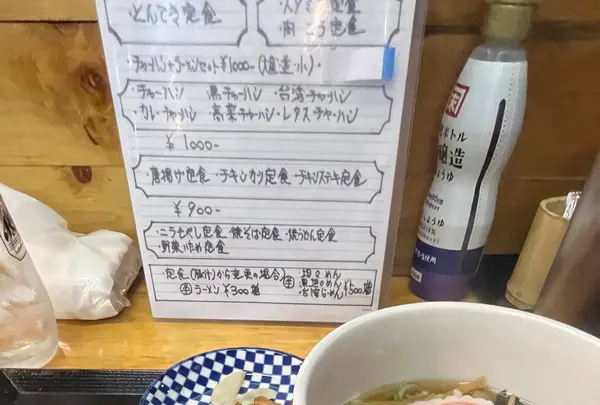 とんてき定食
スタミナ定食
肉じゅう定食
・チャーハン+ラーメンセット¥1000-
・チャーハン ・黒チャーハン ・台湾チャーハン
・カレーチャーハン ・高菜チャーハン・レタスチャーハン
¥1000-
・唐揚げ定食 ・チキンカツ定食 ・チキンステキ定食
¥900-
・こうもやし定食 ・焼そば定食 ・焼うどん定食
・野菜いため定食
定食(豚汁)から変更の場合
坦々めん
ラーメン¥300増
台湾らーめん
¥500増
ボトル
醸造
しょうゆ